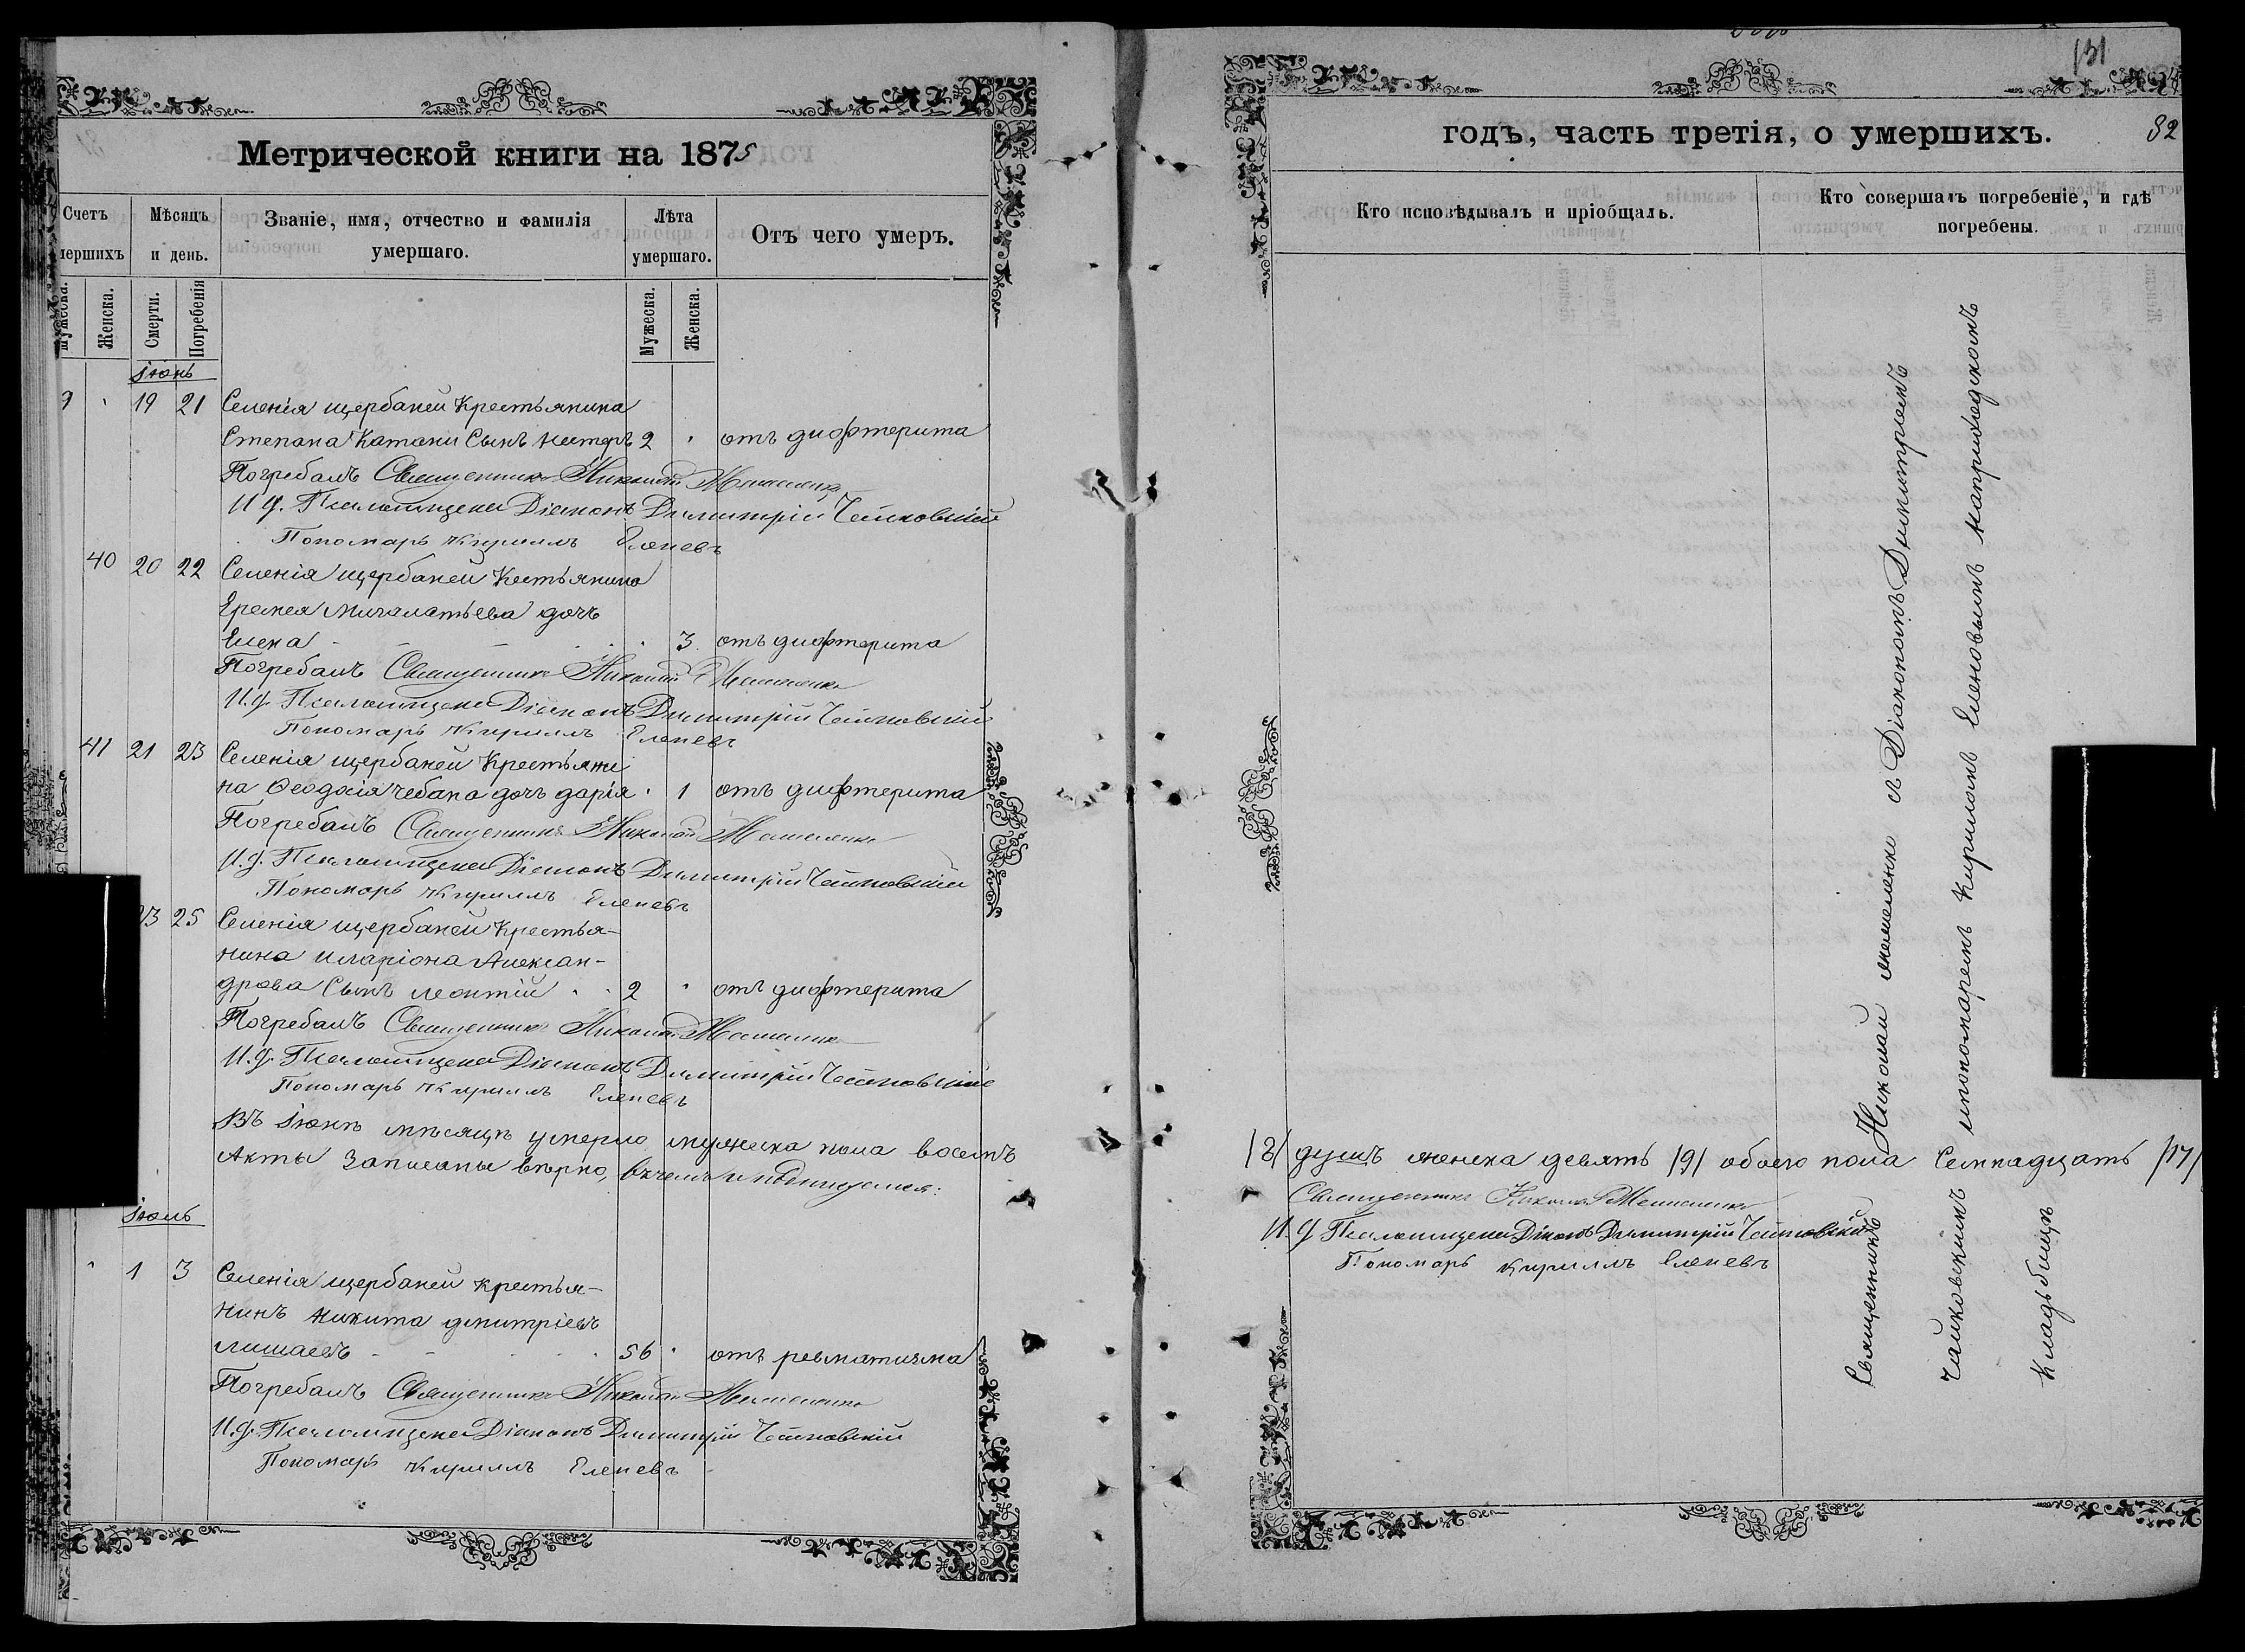 Метрической книги на 1875
Счетъ
мершихъ
Мѣсяцъ
и день.
Званіе, имя, отчество и фамилія
умершаго.
Лѣта
умершаго.
Отъ чего умеръ.
Мужеска.
Женска.
Смерти.
Погребенія
Мужеска.
Женска.
Іюнь
9 19 21 Селенія щербаней Крестьянина
Степана Катани Сынъ Нестеръ 2 отъ дифтерита
Погребалъ Священникъ Николай
И. д. Псаломщека Діаконъ Димитрій Чайковскій
Пономарь Кириллъ Еленевъ
40 20 22 Селенія щербаней Кестьянина
Еремея Михалатьева дочь
Елена 3 отъ дифтерита
Погребалъ Священникъ Николай
И. д. Псаломщека Діаконъ Димитрій Чайковскій
Пономарь Кириллъ Еленевъ
41 21 23 Селенія щербаней Крестьяни
на Ѳеодосія чебана дочь дарія 1 отъ дифтерита
Погребалъ Священникъ Николай
И. д. Псаломщека Діаконъ Димитрій Чайковскій
Пономарь Кириллъ Еленевъ
23 25 Селенія щербаней Крестья-
нина Иларіона Алексан-
дрова Сынъ леонтій 2 отъ дифтерита
Погребалъ Священникъ Николай
И. д. Псаломщека Діаконъ Димитрій Чайковскій
Пономарь Кириллъ Еленевъ
Въ Іюнѣ мѣсяцѣ умерло мужеска пола восемъ
Акты Записаны вѣрно, въ чемъ и
Іюль
1 3 Селенія щербаней крестья-
нинъ Никита дмитріевъ
лишаевъ 56 отъ ревматизма
Погребалъ Священникъ Николай
И. д. Псаломщека Діаконъ Димитрій Чайковскій
Пономарь Кириллъ Еленевъ
131
годъ, часть третія, о умершихъ.
82
Кто исповѣдывалъ и пріобщалъ.
Кто совершалъ погребеніе, и гдѣ
погребены.
/8/ душъ женска девять /9/ обоего пола Семнадцать /17/
Священникъ Николай
И. д. Псаломщека Діаконъ Димитрій Чайковскій
Пономарь Кириллъ Еленевъ
Священникъ Николай съ Діакономъ Димитріемъ
Чайковскимъ ипономаремъ Кириломъ Еленовымъ наприходскомъ
Кладьбищѣ